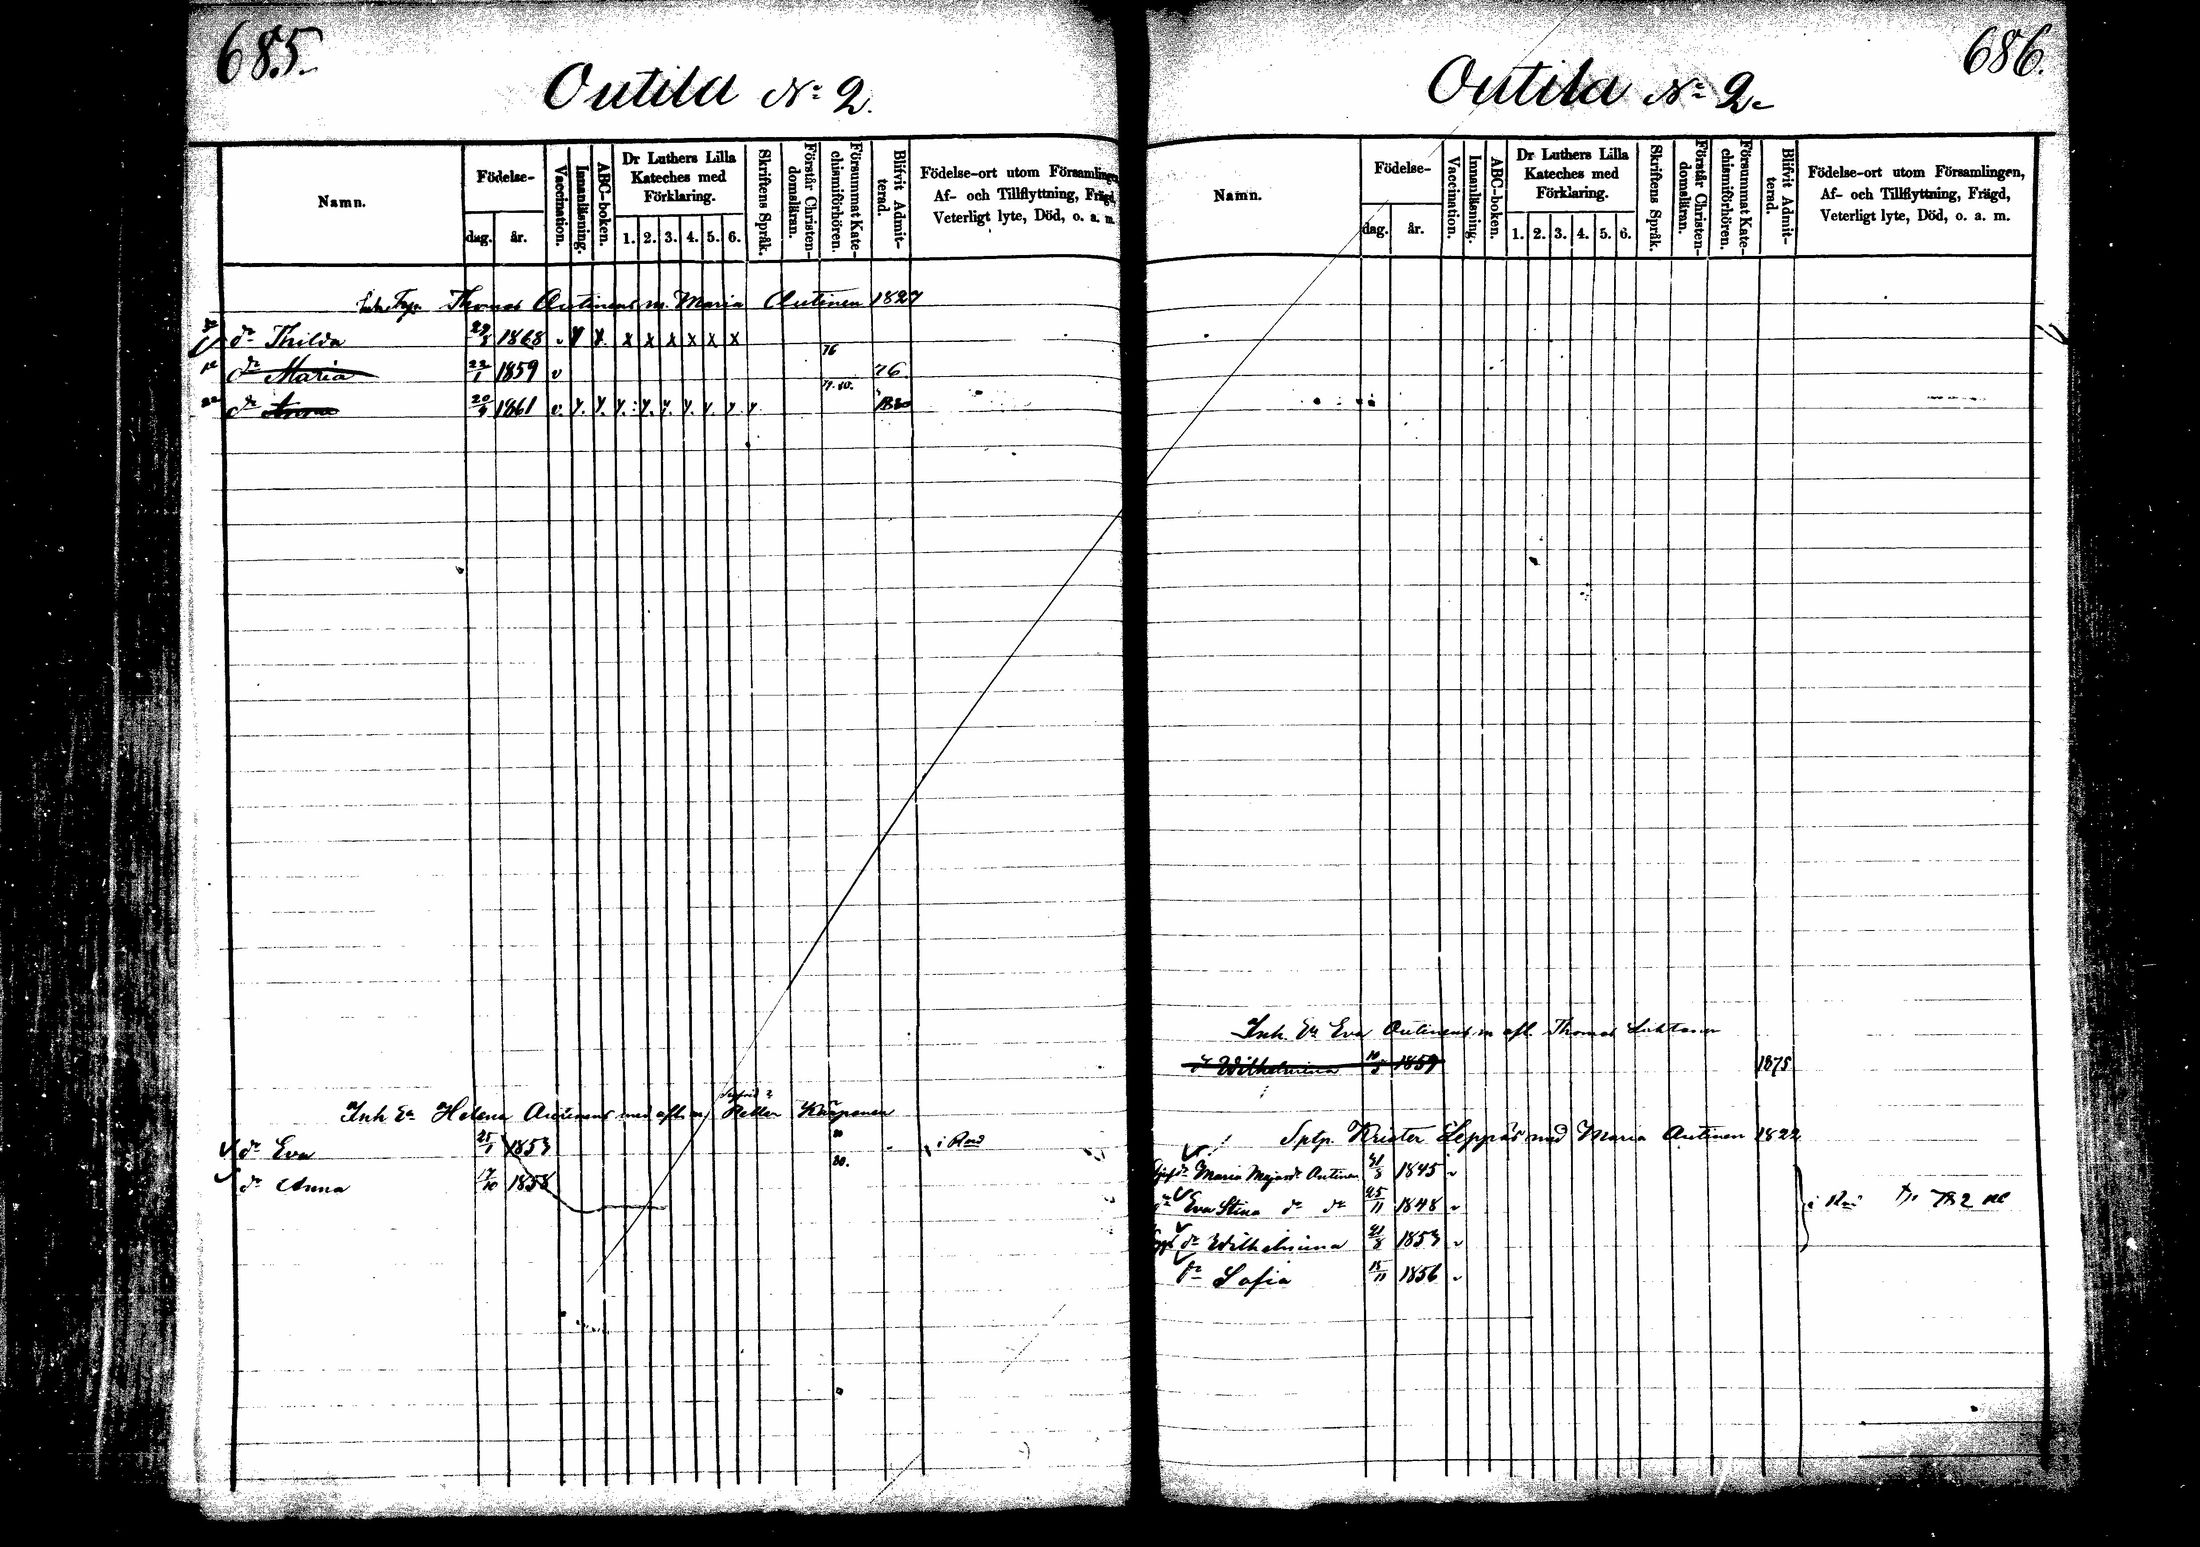 685.
Outila No 2.
Namn.
Födelse-
dag.
år.
Vaccination.
Innanläsning.
ABC-boken.
Dr Luthers Lilla
Kateches med
Förklaring.
1. 2. 3. 4. 5. 6.
Skriftens Språk.
Förstår Christen-
domsläran.
Försummat Kate-
chismiförhören.
Blifvit Admit-
terad.
Födelse-ort utom Församlingen,
Af- och Tillflyttning, Frägd,
Veterligt lyte, Död, o. a. m.
Thomas Outinens m. Maria Outinen 1827
dr Thilda 1868 v Y X. x x x x x x
76
dr Maria 22/1 1859 v 76.
79. 80.
dr Anna 20/9 1861 v. y. y. y. y. y. y. v. y y 1880
Inh Ea Helena Outinens med afl. m. Petter
80
dr Eva 25/1 1853 i Rmd
80.
dr Anna 17/10 1858
686.
Outila No 2.
Namn.
Födelse-
dag.
år.
Vaccination.
Innanläsning.
ABC-boken.
Dr Luthers Lilla
Kateches med
Förklaring.
1. 2. 3. 4. 5. 6.
Skriftens Språk.
Förstår Christen-
domsläran.
Försummat Kate-
chismiförhören.
Blifvit Admit-
terad.
Födelse-ort utom Församlingen,
Af- och Tillflyttning, Frägd,
Veterligt lyte, Död, o. a. m.
Inh. Ea Eva Outinens m afl. Thomas
dr Wilhelmina 1859 1875
Sptp. Krister Leppäs med Maria Outinen 1822
dr Maria Outinen 21/8 1845 v
dr Eva Stina dr dr 25/11 1848 v
dr Wilhelmina 21/8 1853 v
dr Sofia 18/11 1856 v